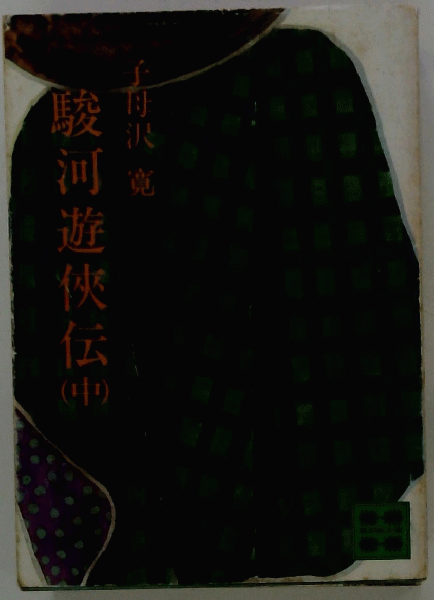 子母沢 寛
駿河遊俠伝
(中)